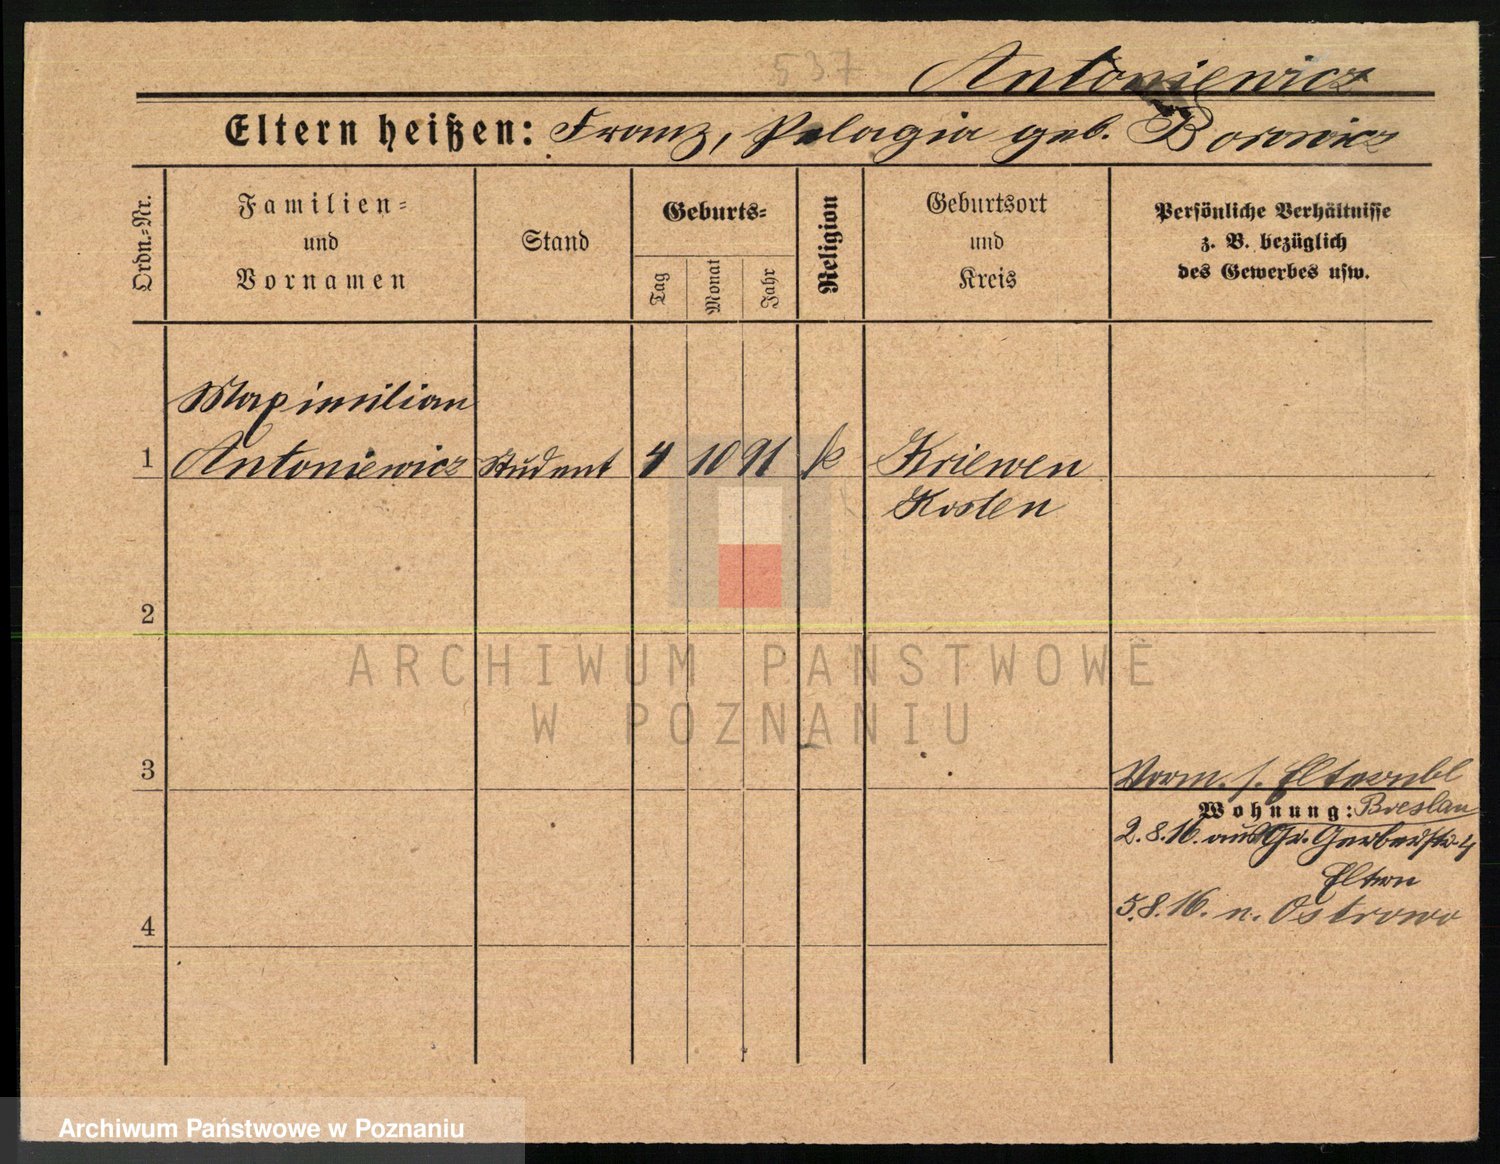 537
Antoniewicz
Eltern heißen: Franz, Pelagia geb. Borowicz
Ordn.-Nr.
Familien-
und
Vornamen
Stand
Geburts-
Tag
Monat
Jahr
Religion
Geburtsort
und
Kreis
Persönliche Verhältnisse
z. B. bezüglich
des Gewerbes usw.
Maximilian
1 Antoniewicz Student 4 10 91 k Kriewen
Kosten
2
ARCHIWUM PAŃSTWOWE
W POZNANIU
3
Vorm. s. Elternbl
Wohnung: Breslau
2.8.16. aus Gr. Gerberstr. 4
Eltern
5.8.16. n. Ostrowo
4
Archiwum Państwowe w Poznaniu